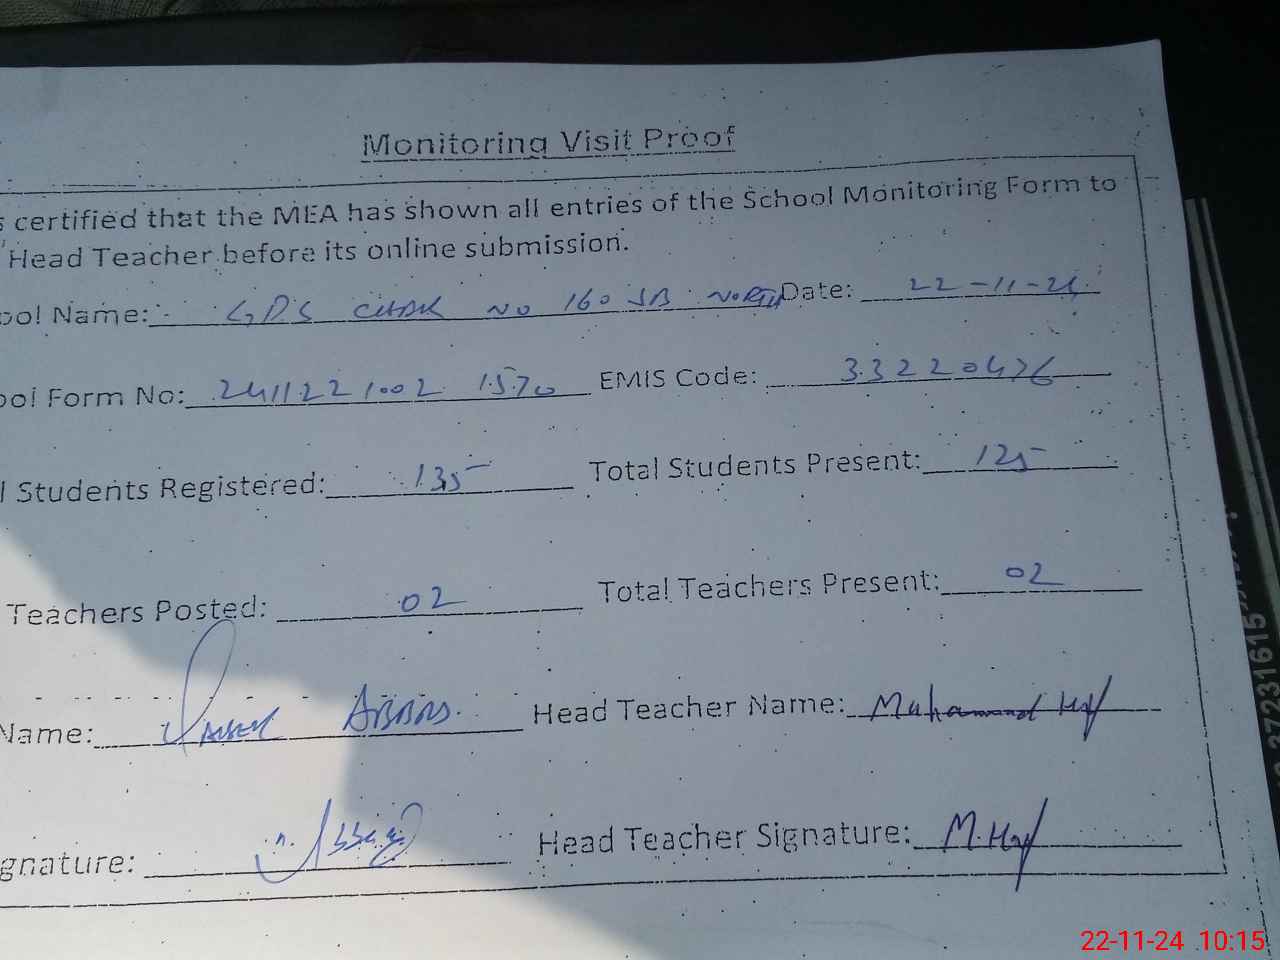 Monitoring Visit Proof
s certified that the MEA has shown all entries of the School Monitoring Form to
Head Teacher before its online submission.
ool Name: GPS CHAK NO 160 JB NORTH Date: 22-11-24
ool Form No: 2411221002 1570 EMIS Code: 33220476
l Students Registered: 135 Total Students Present: 125
Teachers Posted: 02 Total Teachers Present: 02
Name: ABBAS. Head Teacher Name: Muhammad
gnature: Head Teacher Signature: M.
37231615
22-11-24 10:15